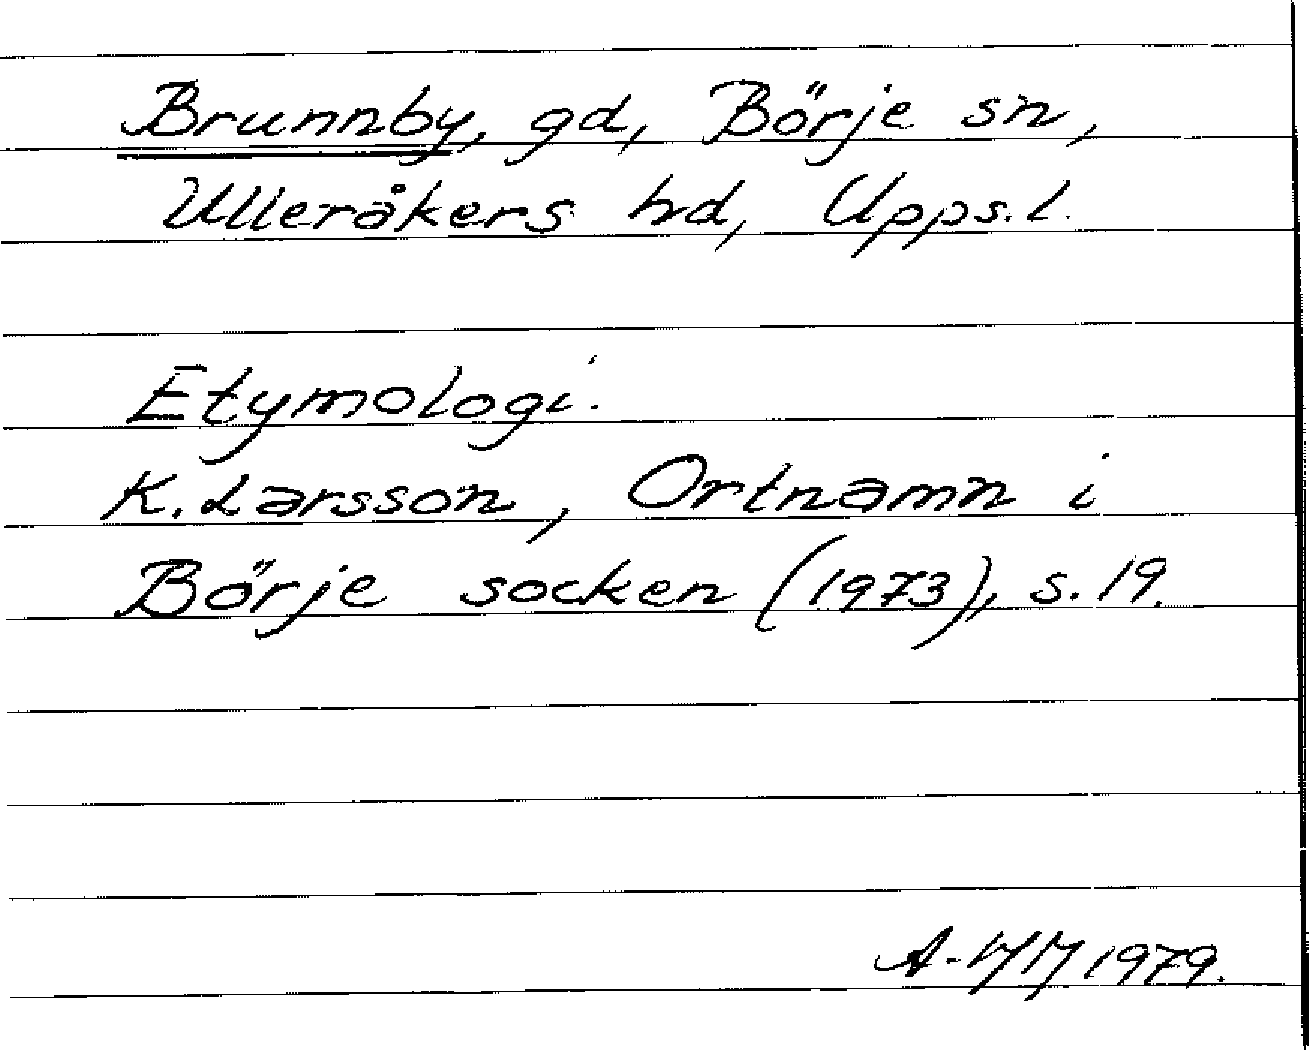 Brunnby, gd, Börje sn,
Ulleråkers hd, Upps. l.
Etymologi.
K. Larsson, Ortnamn i
Börje socken (1973), s. 19.
1979.